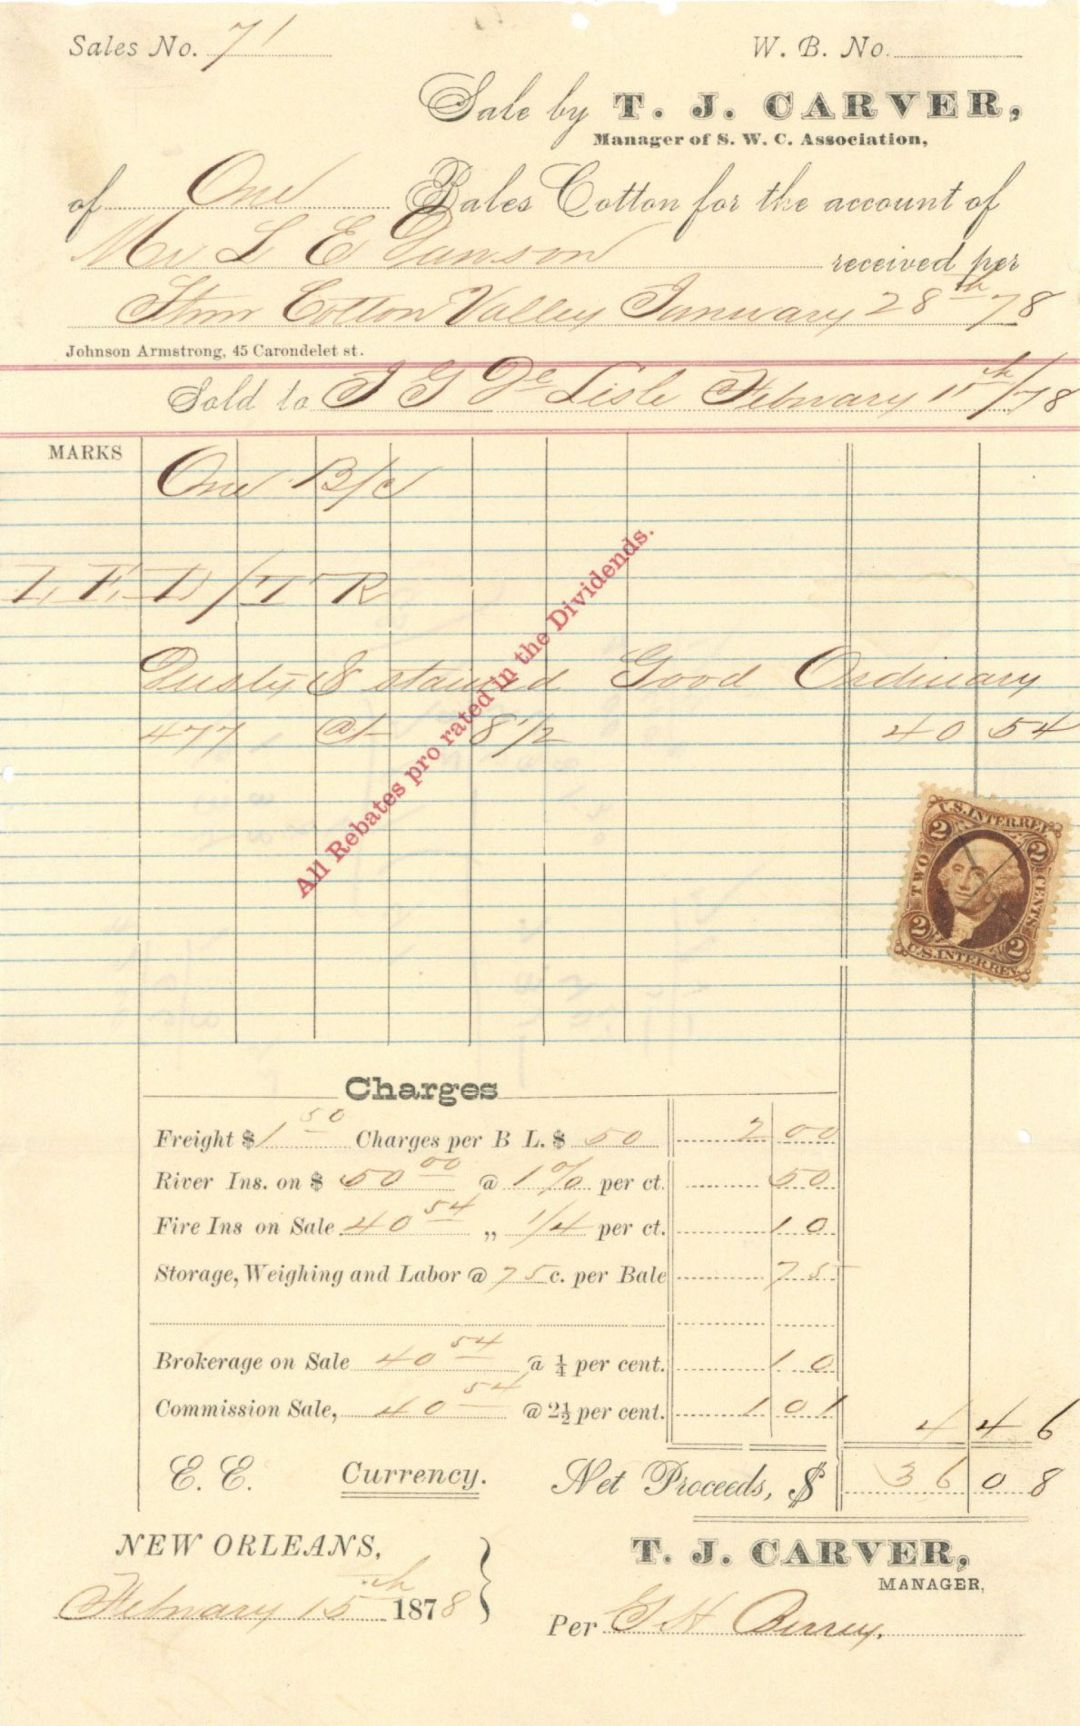 Sales No. 71 W. B. No.
Sale by T. J. CARVER,
Manager of S. W. C. Association,
of One Bales Cotton for the account of
Mr L E received per
Stmr Cotton Valley January 28th 78
Johnson Armstrong, 45 Carondelet st.
Sold to J G De Lisle February 15th/78
MARKS One B/C
L E D/T R
All Rebates pro rated in the Dividends.
Dusty & stained Good Ordinary
477 @ 8 1/2 40 54
U.S. INTER. REV.
2 2
TWO CENTS
2 2
U.S. INTER. REV.
Charges
Freight $ 1 50 Charges per B L. $ 50 2 00
River Ins. on $ 50 00 @ 1 % per ct. 50
Fire Ins on Sale 40 54 „ 1/4 per ct. 10
Storage, Weighing and Labor @ 75 c. per Bale 75
Brokerage on Sale 40 54 @ ¼ per cent. 10
Commission Sale, 40 54 @ 2½ per cent. 1 01 4 46
E. E. Currency. Net Proceeds, $ 36 08
NEW ORLEANS, T. J. CARVER,
MANAGER,
February 15th 1878
Per G H